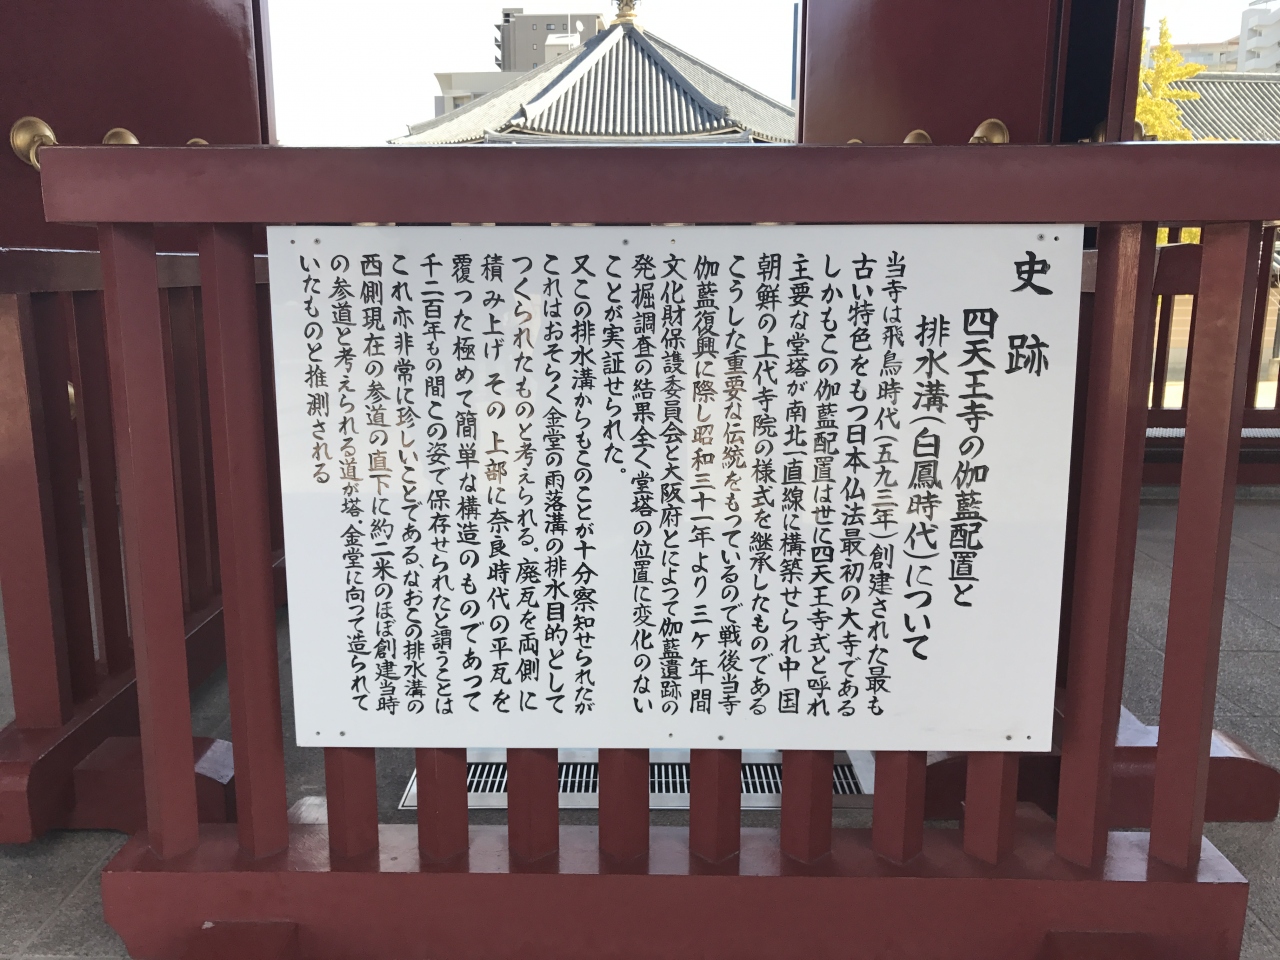 史跡
四天王寺の伽藍配置と
排水溝(白鳳時代)について
当寺は飛鳥時代(五九三年)創建された最も
古い特色をもつ日本仏法最初の大寺である
しかもこの伽藍配置は世に四天王寺式と呼れ
主要な堂塔が南北一直線に構築せられ中国
朝鮮の上代寺院の様式を継承したものである
こうした重要な伝統をもつているので戦後当寺
伽藍復興に際し昭和三十一年より三ケ年間
文化財保護委員会と大阪府とによつて伽藍遺跡の
発掘調査の結果全く堂塔の位置に変化のない
ことが実証せられた。
又この排水溝からもこのことが十分察知せられたが
これはおそらく金堂の雨落溝の排水目的として
つくられたものと考えられる。廃瓦を両側に
積み上げその上部に奈良時代の平瓦を
覆つた極めて簡単な構造のものであつて
千二百年もの間この姿で保存せられたと謂うことは
これ亦非常に珍しいことである、なおこの排水溝の
西側現在の参道の直下に約二米のほぼ創建当時
の参道と考えられる道が塔・金堂に向つて造られて
いたものと推測される